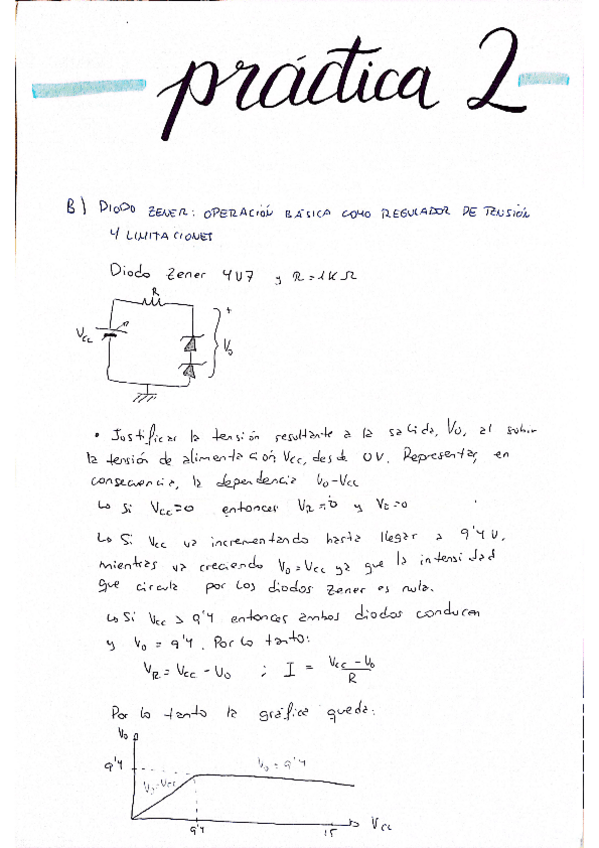 práctica 2
B) DIODO ZENER: OPERACIÓN BÁSICA COMO REGULADOR DE TENSIÓN
Y LIMITACIONES
Diodo Zener 4V7 y R=1KΩ
R
Vcc
+
Vo
• Justificar la tensión resultante a la salida, Vo, al subir
la tensión de alimentación Vcc, desde 0V. Representar, en
consecuencia, la dependencia Vo-Vcc
↳ Si Vcc=0 entonces VR=0 y VZ=0
↳ Si Vcc va incrementando hasta llegar a 9'4 V,
mientras va creciendo Vo=Vcc ya que la intensidad
que circula por los diodos zener es nula.
↳ Si Vcc > 9'4 entonces ambos diodos conducen
y Vo = 9'4. Por lo tanto:
VR = Vcc - Vo ; I = Vcc - Vo / R
Por lo tanto la gráfica queda:
Vo
9'4
Vo=Vcc
Vo = 9'4
9'4
15
Vcc